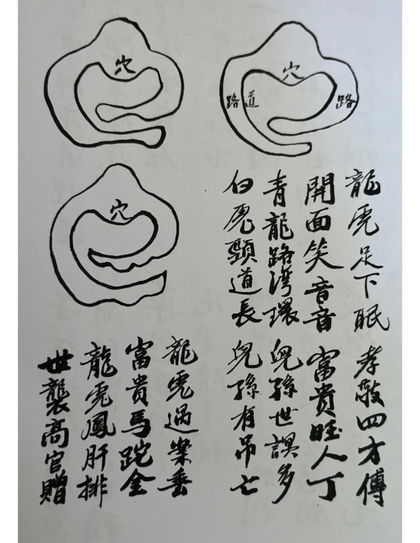 穴
穴
路 道
路
穴
龍虎足下眠 孝敬四方傳
開面笑音音 富貴旺人丁
青龍路灣環 兒孫世誤多
白虎道長 兒孫有吊亡
龍虎過案垂
富貴馬跎金
龍虎鳳肝排
世襲高官贈